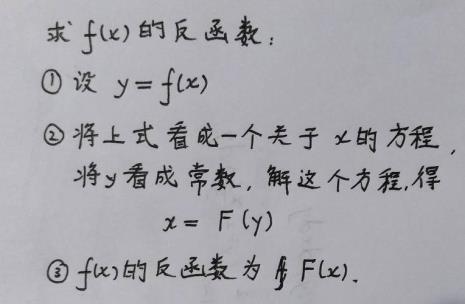 求 f(x) 的反函数:
① 设 y = f(x)
② 将上式看成一个关于 x 的方程,
将y看成常数, 解这个方程,得
x = F(y)
③ f(x)的反函数为 F(x).